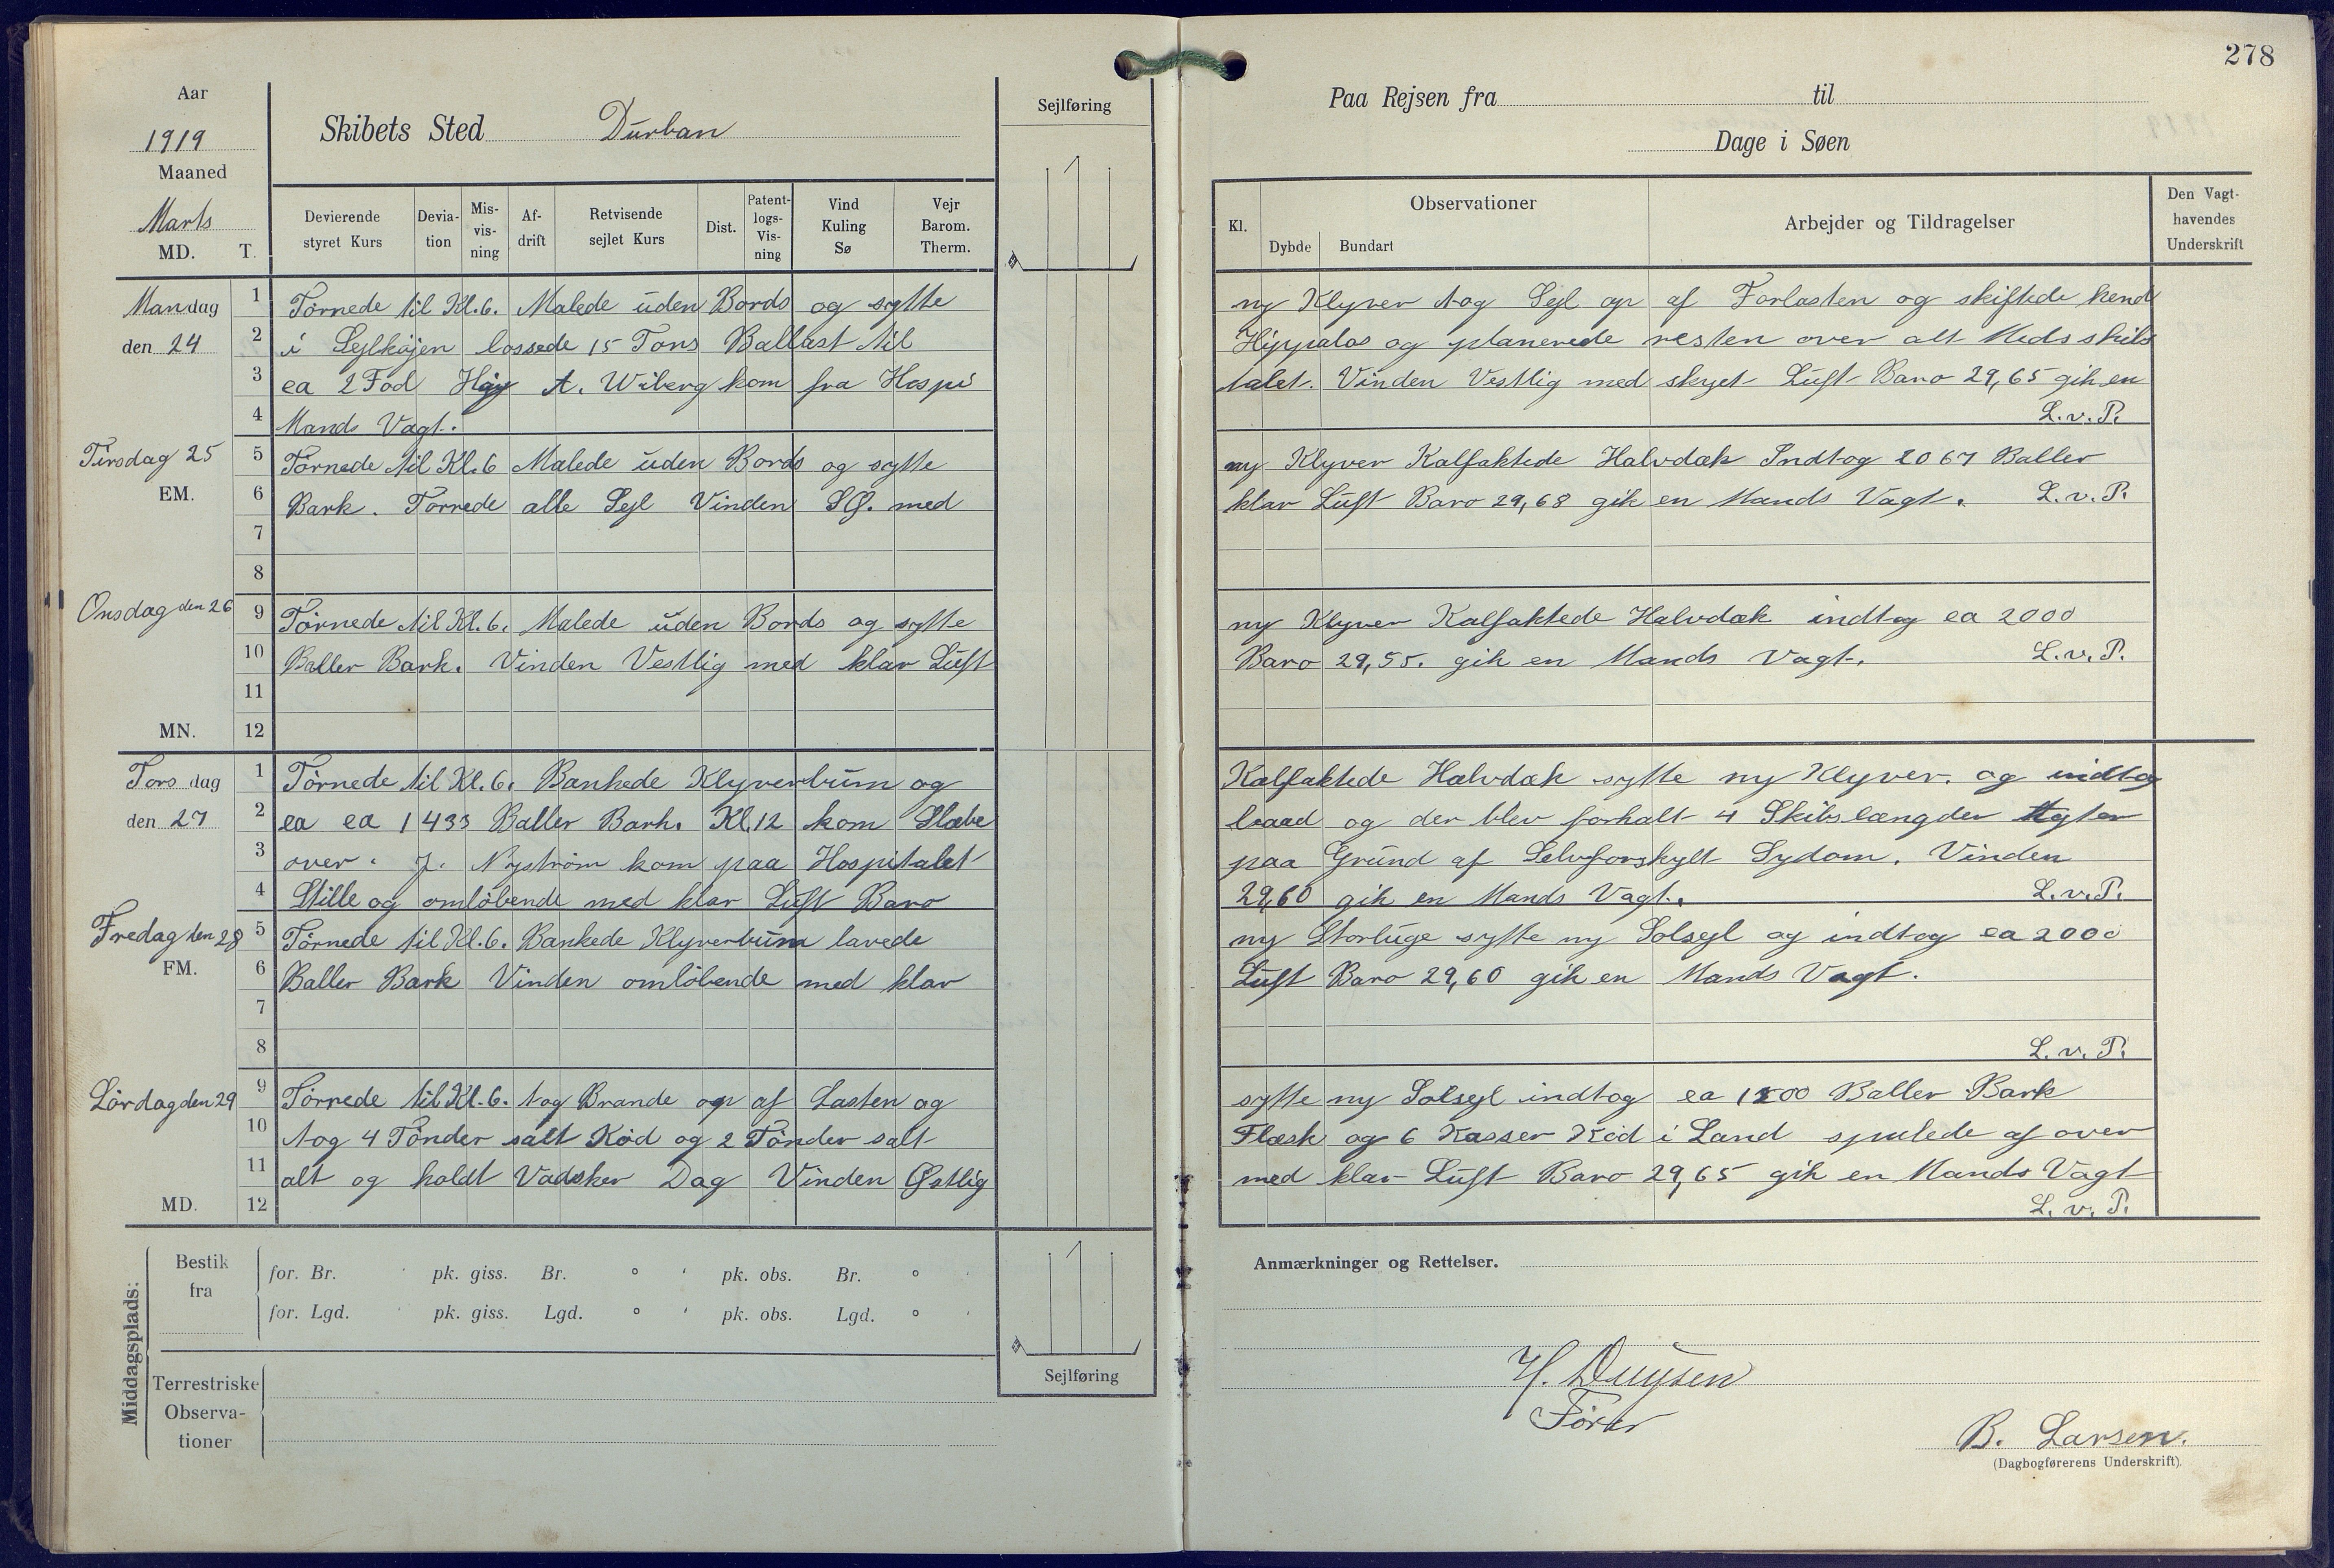 278
Aar
1919
Maaned
Marts
MD. T.
Skibets Sted Durban
Sejlføring
Devierende styret Kurs
Devia-tion
Mis-vis-ning
Af-drift
Retvisende sejlet Kurs
Dist.
Patent-logs-Vis-ning
Vind Kuling Sø
Vejr Barom. Therm.
Paa Rejsen fra til
Dage i Søen
Kl.
Observationer
Dybde Bundart
Arbejder og Tildragelser
Den Vagt-havendes Underskrift
Mandag
den 24
1 Törnede til Kl. 6. Malede uden Bords og sytte ny Klyver tog Sejl op af Forlasten og skiftede hend
2 i Sejlköjen lossede 15 Tons Ballast til og planerede resten over alt Meds skibs
3 ca 2 Fod A. Wiberg kom fra Hospi talet. Vinden Vestlig med skyet Luft Baro 29,65 gik en
4 Mands Vagt. L. v. P.
Tirsdag 25
EM.
5 Törnede til Kl. 6 Malede uden Bords og sytte ny Klyver Kalfaktede Halvdæk Indtog 2067 Baller
6 Bark. Torrede alle Sejl Vinden SØ. med klar Luft Baro 29,68 gik en Mands Vagt. L. v. P.
7
8
Onsdag den 26
9 Törnede til Kl. 6. Malede uden Bords og sytte ny Klyver Kalfaktede Halvdæk indtog ca 2000
10 Baller Bark. Vinden Vestlig med klar Luft Baro 29,55. gik en Mands Vagt. L. v. P.
11
MN. 12
Torsdag
den 27
1 Törnede til Kl. 6. Bankede Klyverbum og Kalfaktede Halvdæk sytte ny Klyver. og indtog
2 ca ca 1433 Baller Bark. Kl. 12 kom Slæbe baad og der blev forhalt 4 Skibslængder Agter
3 over. J. Nyström kom paa Hospitalet paa Grund af Selvforskylt Sydom. Vinden
4 Stille og omlöbende med klar Luft Baro 29,60 gik en Mands Vagt. L. v. P.
Fredag den 28
FM.
5 Törnede til Kl. 6. Bankede Klyverbum lavede ny Storluge sytte ny Solsejl og indtog ca 2000
6 Baller Bark Vinden omlöbende med klar Luft Baro 29,60 gik en Mands Vagt.
7
8 L. v. P.
Lördag den 29
9 Törnede til Kl. 6. tog Brande op af Lasten og sytte ny Solsejl indtog ca 1500 Baller Bark
10 tog 4 Tönder salt Kød og 2 Tönder salt Flæsk og 6 Kasser Kød i Land spulede af over
11 alt og holdt Vadsker Dag Vinden Østlig med klar Luft Baro 29,65 gik en Mands Vagt
MD. 12 L. v. P.
Middagsplads:
Bestik fra
for. Br. ' pk. giss. Br. ° ' pk. obs. Br. ° '
for. Lgd. ' pk. giss. Lgd. ° ' pk. obs. Lgd. ° '
Terrestriske Observa-tioner
Sejlføring
Anmærkninger og Rettelser.
H. Duysen
Fører
B. Larsen.
(Dagbogførerens Underskrift).